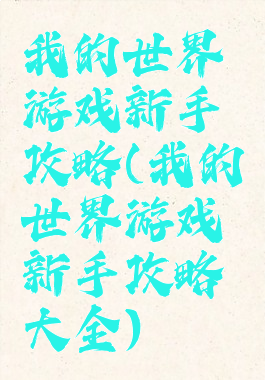 我的世界
游戏新手
攻略(我的
世界游戏
新手攻略
大全)